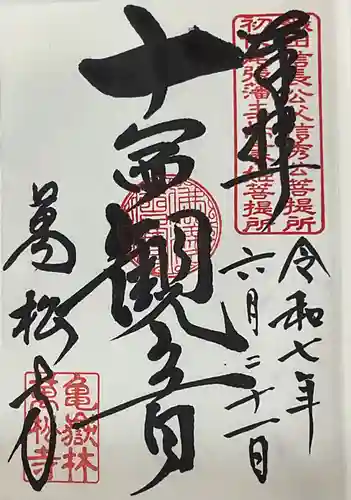 奉拝
織田信長公父信秀公菩提所
初代尾張藩主
菩提所
十一面観音
令和七年
六月二十一日
萬松寺
亀嶽林
萬松寺